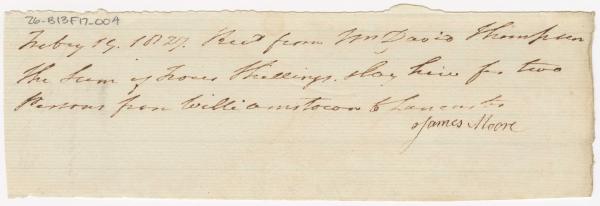 26-B13F17-004
Febry 19. 1827. Recd from Mr David Thompson
the Sum of Four Shillings. slay hire for two
Persons from Williamstown to Lancaster
James Moore